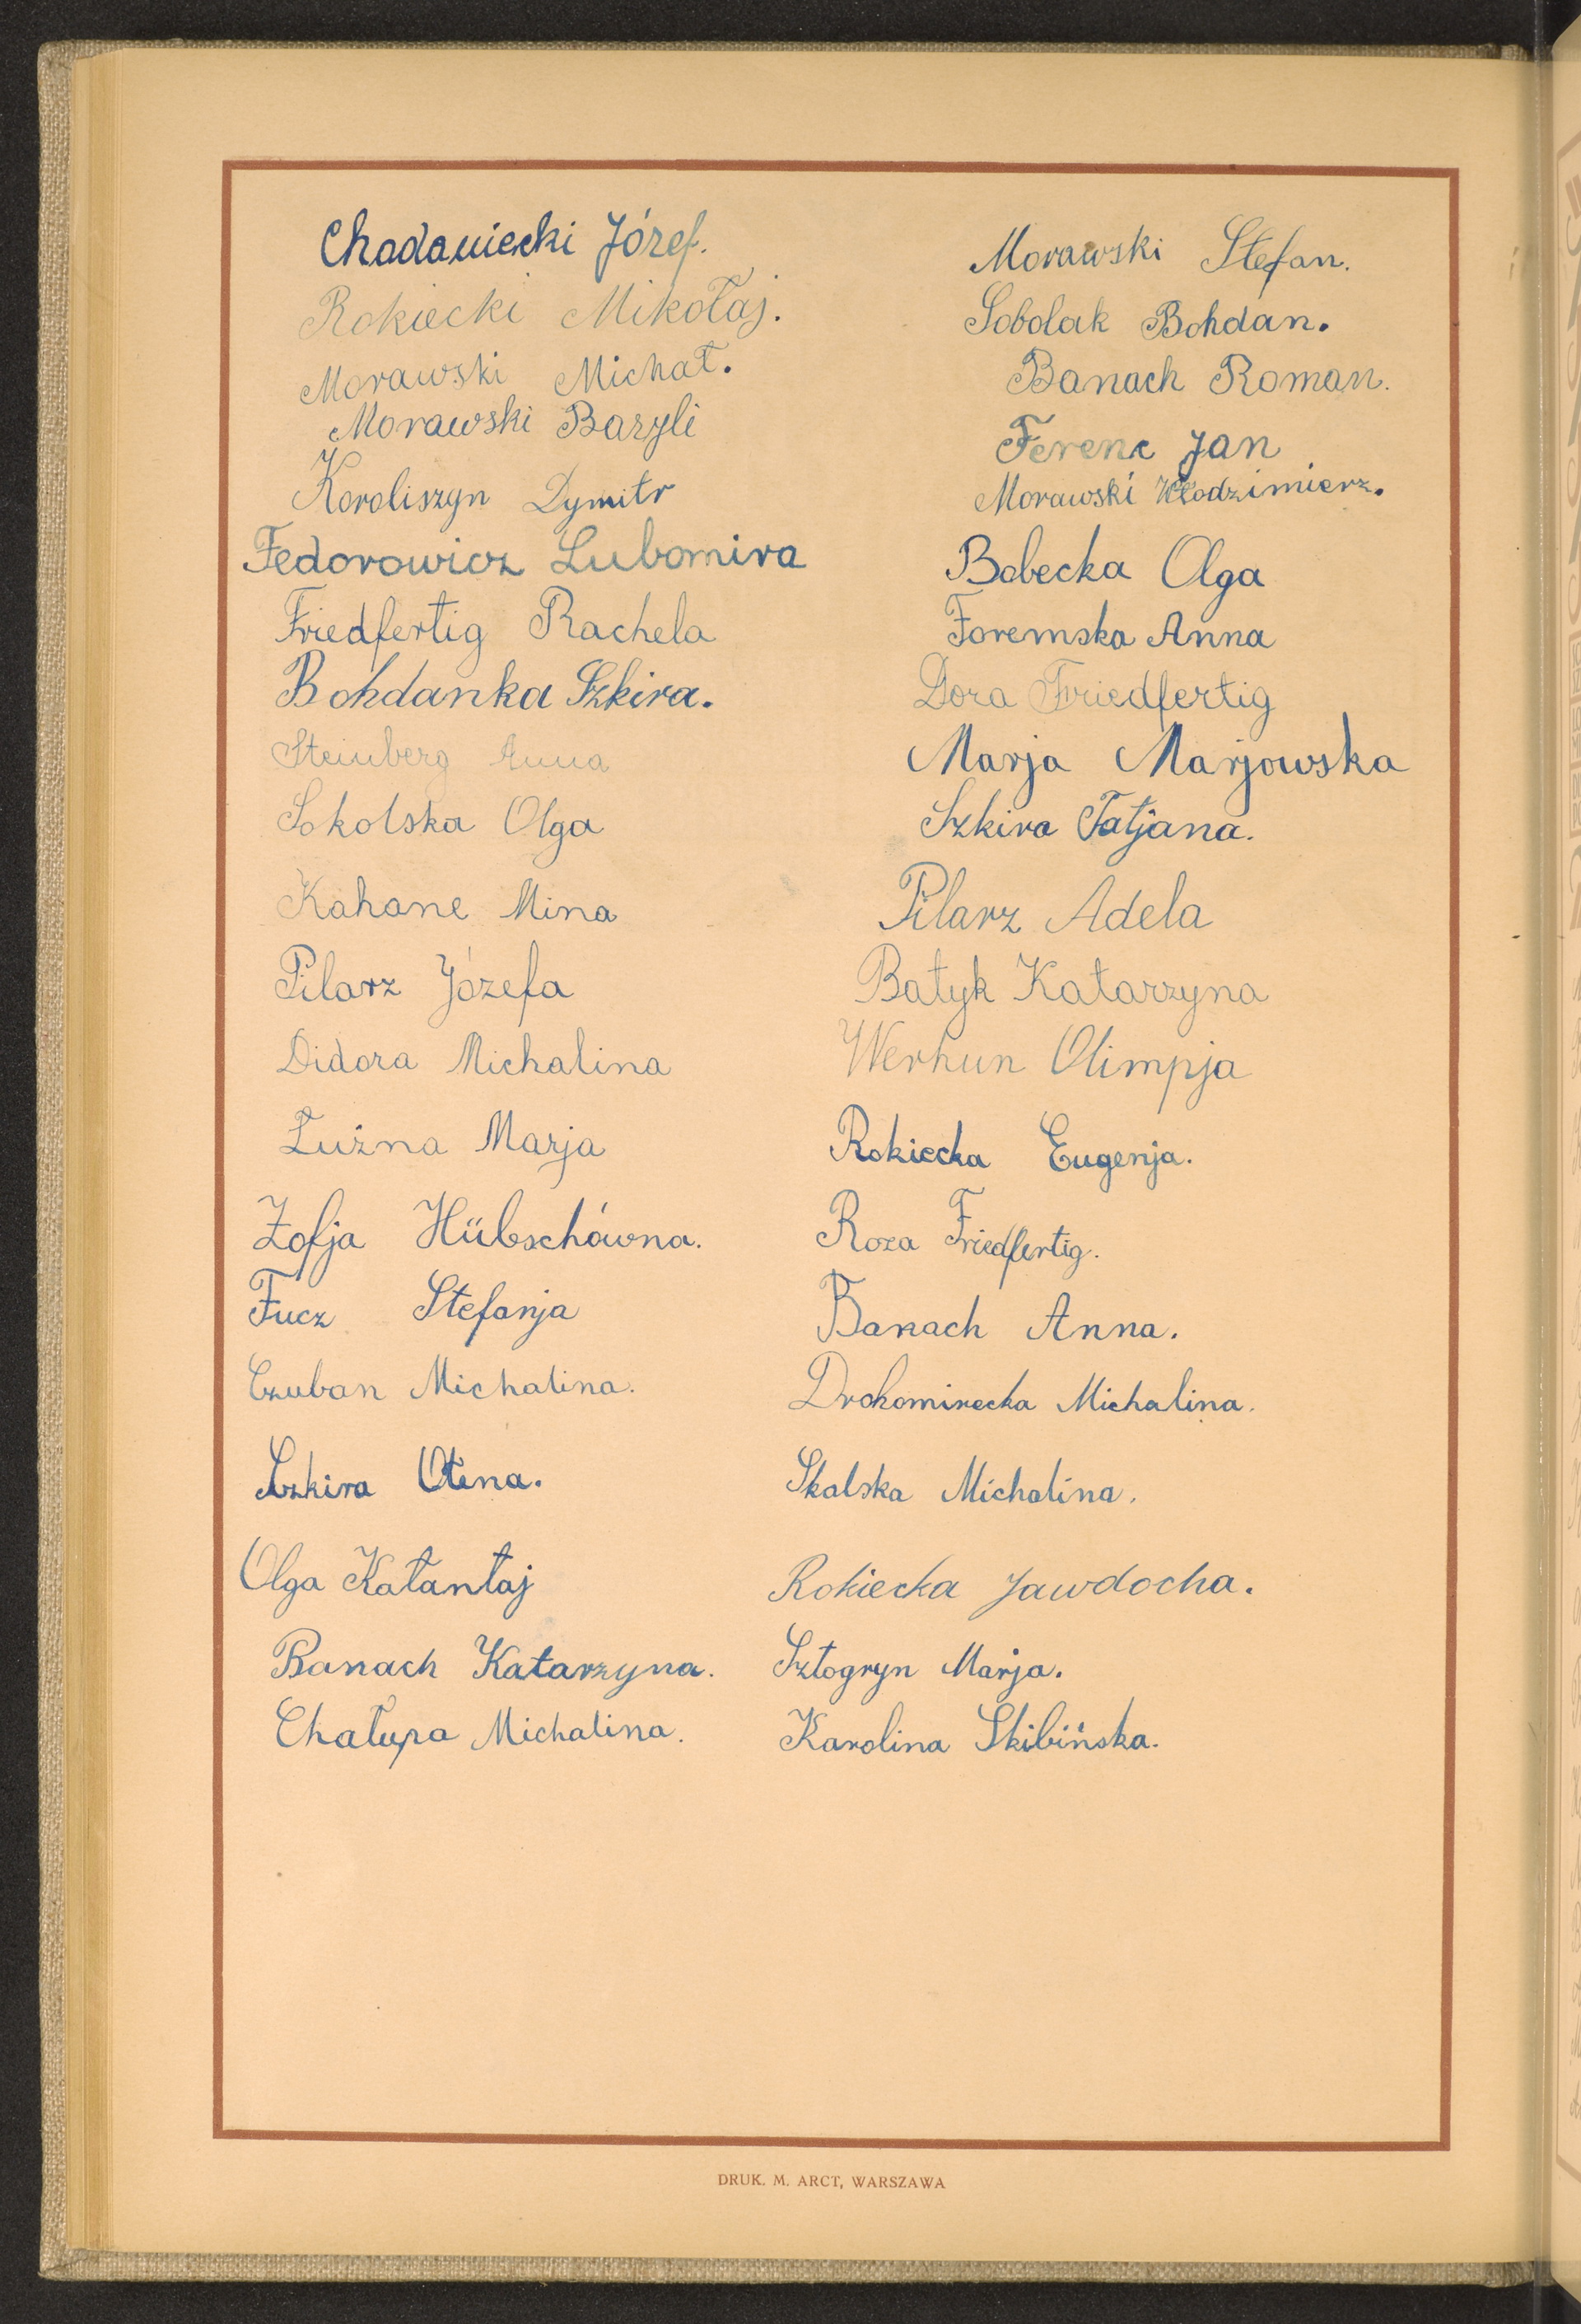 Chadaniecki Józef.
Rokiecki Mikołaj.
Morawski Michał.
Morawski Bazyli
Koroliszyn Dymitr
Fedorowicz Lubomira
Friedfertig Rachela
Bohdanka Szkira.
Steinberg Anna
Sokolska Olga
Kahane Mina
Pilarz Józefa
Didora Michalina
Łuźna Marja
Zofja Hübschówna.
Fucz Stefanja
Czuban Michalina.
Szkira Olena.
Olga Kałantaj
Banach Katarzyna.
Chałupa Michalina.
Morawski Stefan.
Sobolak Bohdan.
Banach Roman.
Ferenc Jan
Morawski Włodzimierz.
Bobecka Olga
Foremska Anna
Dora Friedfertig
Marja Marjowska
Szkira Tatjana.
Pilarz Adela
Batyk Katarzyna
Werhun Olimpja
Rokiecka Eugenja.
Roza Friedfertig.
Banach Anna.
Drohomirecka Michalina.
Skalska Michalina.
Rokiecka Jawdocha.
Sztogryn Marja.
Karolina Skibińska.
DRUK. M. ARCT, WARSZAWA